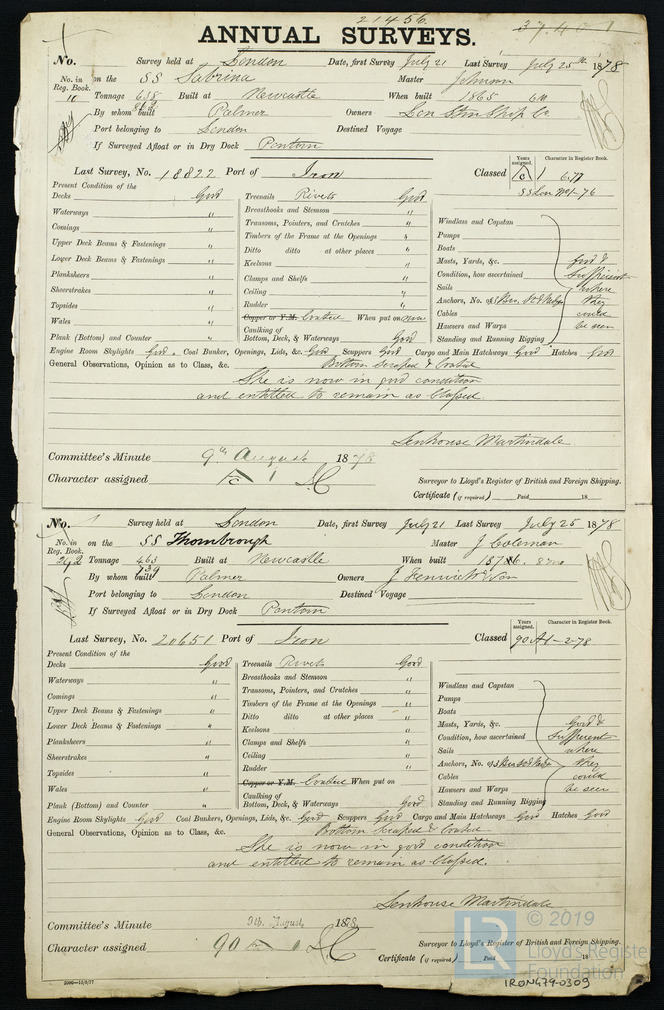 21456
ANNUAL SURVEYS.
No. Survey held at London Date, first Survey July 21 Last Survey July 25th 1878
No. in Reg. Book. 10 on the SS Sabrina Master Johnson
Tonnage 638 Built at Newcastle When built 1865
By whom built Palmer Owners Lon Stm Ship Co
Port belonging to London Destined Voyage
If Surveyed Afloat or in Dry Dock Pontoon
Last Survey, No. 18822 Port of Iron Classed
Years assigned. Character in Register Book.
Present Condition of the
Decks Good Treenails Rivets Good
Waterways " Breasthooks and Stemson " Windlass and Capstan
Comings " Transoms, Pointers, and Crutches " Pumps
Upper Deck Beams & Fastenings " Timbers of the Frame at the Openings " Boats
Lower Deck Beams & Fastenings " Ditto ditto at other places " Masts, Yards, &c. Good &
Planksheers " Keelsons " Condition, how ascertained Sufficient
Sheerstrakes " Clamps and Shelfs " Sails where
Topsides " Ceiling " Anchors, No. of they
Wales " Rudder " Cables could
Copper or Y.M. Coated When put on now Hawsers and Warps be seen
Plank (Bottom) and Counter " Caulking of Bottom, Deck, & Waterways Good Standing and Running Rigging
Engine Room Skylights Good. Coal Bunker, Openings, Lids, &c. Good Scuppers Good Cargo and Main Hatchways Good Hatches Good
General Observations, Opinion as to Class, &c. Bottom scraped & Coated
She is now in good condition
and entitled to remain as Classed.
Senhouse Martindale
Committee's Minute 9th August 1878
Character assigned Surveyor to Lloyd's Register of British and Foreign Shipping.
Certificate (if required) Paid 18
No. Survey held at London Date, first Survey July 21 Last Survey July 25 1878
No. in Reg. Book. 242 on the SS Thornbrough Master J Coleman
Tonnage 463 Built at Newcastle When built
By whom built Palmer Owners J Fenwick & Son
Port belonging to London Destined Voyage
If Surveyed Afloat or in Dry Dock Pontoon
Last Survey, No. 20651 Port of Iron Classed 90 A1-2-78
Years assigned. Character in Register Book.
Present Condition of the
Decks Good Treenails Rivets Good
Waterways " Breasthooks and Stemson " Windlass and Capstan
Comings " Transoms, Pointers, and Crutches " Pumps
Upper Deck Beams & Fastenings " Timbers of the Frame at the Openings " Boats
Lower Deck Beams & Fastenings " Ditto ditto at other places " Masts, Yards, &c. Good &
Planksheers " Keelsons " Condition, how ascertained Sufficient
Sheerstrakes " Clamps and Shelfs " Sails where
Topsides " Ceiling " Anchors, No. of they
Wales " Rudder " Cables could
Copper or Y.M. Coated When put on Hawsers and Warps be seen
Plank (Bottom) and Counter " Caulking of Bottom, Deck, & Waterways Good Standing and Running Rigging
Engine Room Skylights Good Coal Bunkers, Openings, Lids, &c. Good Scuppers Good Cargo and Main Hatchways Good Hatches Good
General Observations, Opinion as to Class, &c. Bottom scraped & Coated
She is now in good condition
and entitled to remain as Classed.
Senhouse Martindale
Committee's Minute 9th August 1878
Character assigned 90 Surveyor to Lloyd's Register of British and Foreign Shipping.
Certificate (if required) Paid 18
LR © 2019
Lloyd's Register
Foundation
IRON479-0309